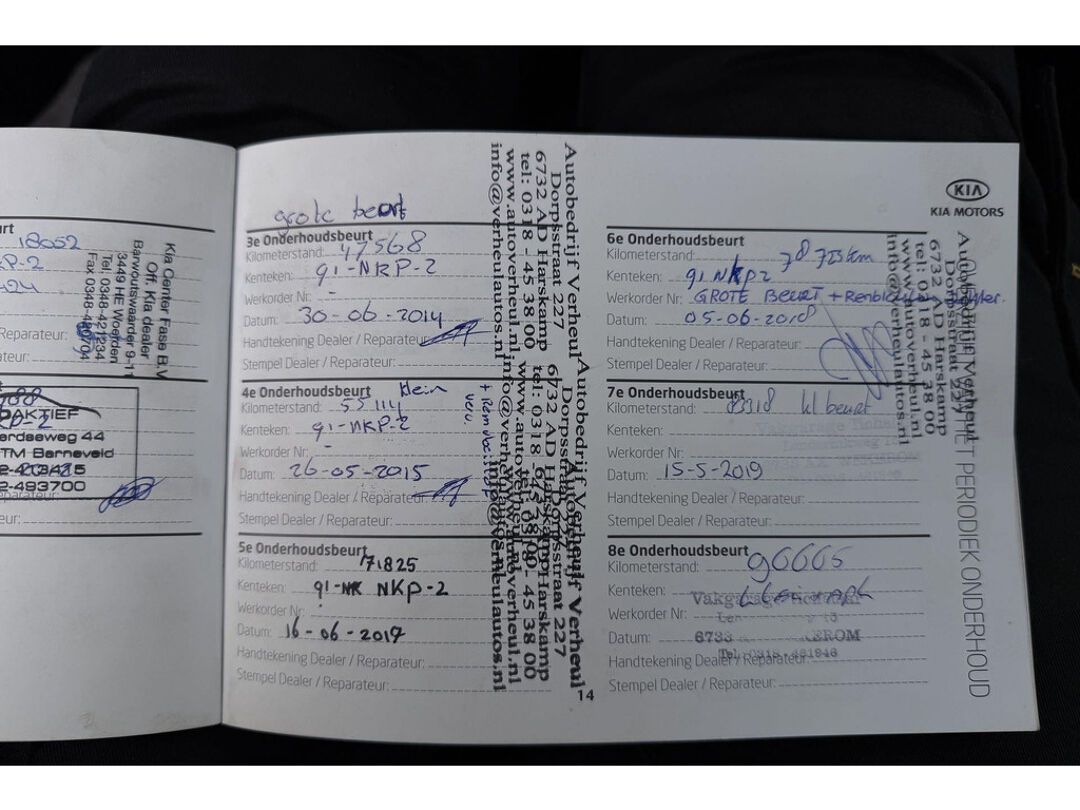 urt
18052
P-2
424
Reparateur:
ateur:
Kia Center Fase B.V
Off. Kia dealer
Barwoutswaarder 9-11
3449 HE Woerden
Tel. 0348-421234
Fax 0348-420704
DAKTIEF
P-2
erdseweg 44
TM Barneveld
2-493700
eparateur:
eur:
grote beurt
3e Onderhoudsbeurt
Kilometerstand: 47568
Kenteken: 91-NKP-2
Werkorder Nr: -
Datum: 30-06-2014
Handtekening Dealer / Reparateur:
Stempel Dealer / Reparateur:
4e Onderhoudsbeurt klein
Kilometerstand: 55114
Kenteken: 91-NKP-2
Werkorder Nr: -
Datum: 26-05-2015
Handtekening Dealer / Reparateur:
Stempel Dealer / Reparateur:
5e Onderhoudsbeurt
Kilometerstand: 71825
Kenteken: 91-NK NKP-2
Werkorder Nr:
Datum: 16-06-2017
Handtekening Dealer / Reparateur:
Stempel Dealer / Reparateur:
Autobedrijf Verheul
Dorpsstraat 227
6732 AD Harskamp
tel: 0318 - 45 38 00
www.autoverheul.nl
info@verheulautos.nl
Autobedrijf Verheul
Dorpsstraat 227
6732 AD Harskamp
tel: 0318 - 45 38 00
www.autoverheul.nl
info@verheulautos.nl
14
KIA
KIA MOTORS
6e Onderhoudsbeurt
Kilometerstand: 78725km
Kenteken: 91NKP2
Werkorder Nr: GROTE BEURT +
Datum: 05-06-2018
Handtekening Dealer / Reparateur:
Stempel Dealer / Reparateur:
Autobedrijf Verheul
Dorpsstraat 227
6732 AD Harskamp
tel: 0318 - 45 38 00
www.autoverheul.nl
info@verheulautos.nl
7e Onderhoudsbeurt
Kilometerstand: 83318 kl beurt
Kenteken:
Werkorder Nr:
Datum: 15-5-2019
Handtekening Dealer / Reparateur:
Stempel Dealer / Reparateur:
8e Onderhoudsbeurt
Kilometerstand: 90665
Kenteken:
Vakgarage
Werkorder Nr:
Datum: 6733
Handtekening Dealer / Reparateur:
Stempel Dealer / Reparateur:
PERIODIEK ONDERHOUD